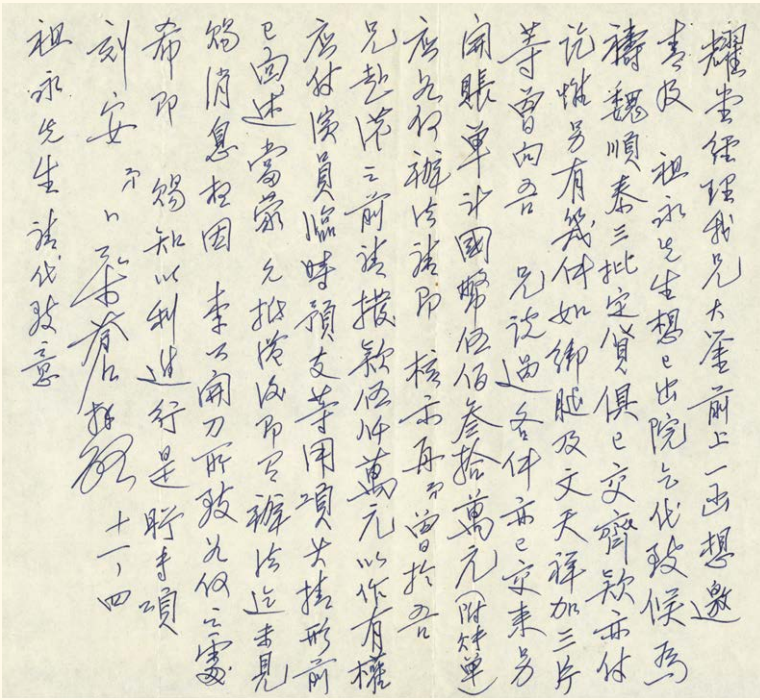 耀堂經理我兄大鉴前上一函想邀
青及 祖永先生想已出院乞代致候為
禱魏順泰三批定貨俱已交齊欵亦付
訖惟另有幾件如綁腿及文天祥加三片
等曾向吾 兄談過各件亦已交來另
開賬單計國幣伍佰叁拾萬元(附 單)
應如何辦法請即 核示再 曾於吾
兄赴滬之前請撥欵伍仟萬元以作有權
應付演員臨時預支等用項其情形前
已面述當蒙 允抵滬後即可辦法迄未見
賜消息想因 李公開刀所致如何之處
希即 賜知以利進行是盼专頌
刻安 蒼 十一、四
祖永先生請代致意